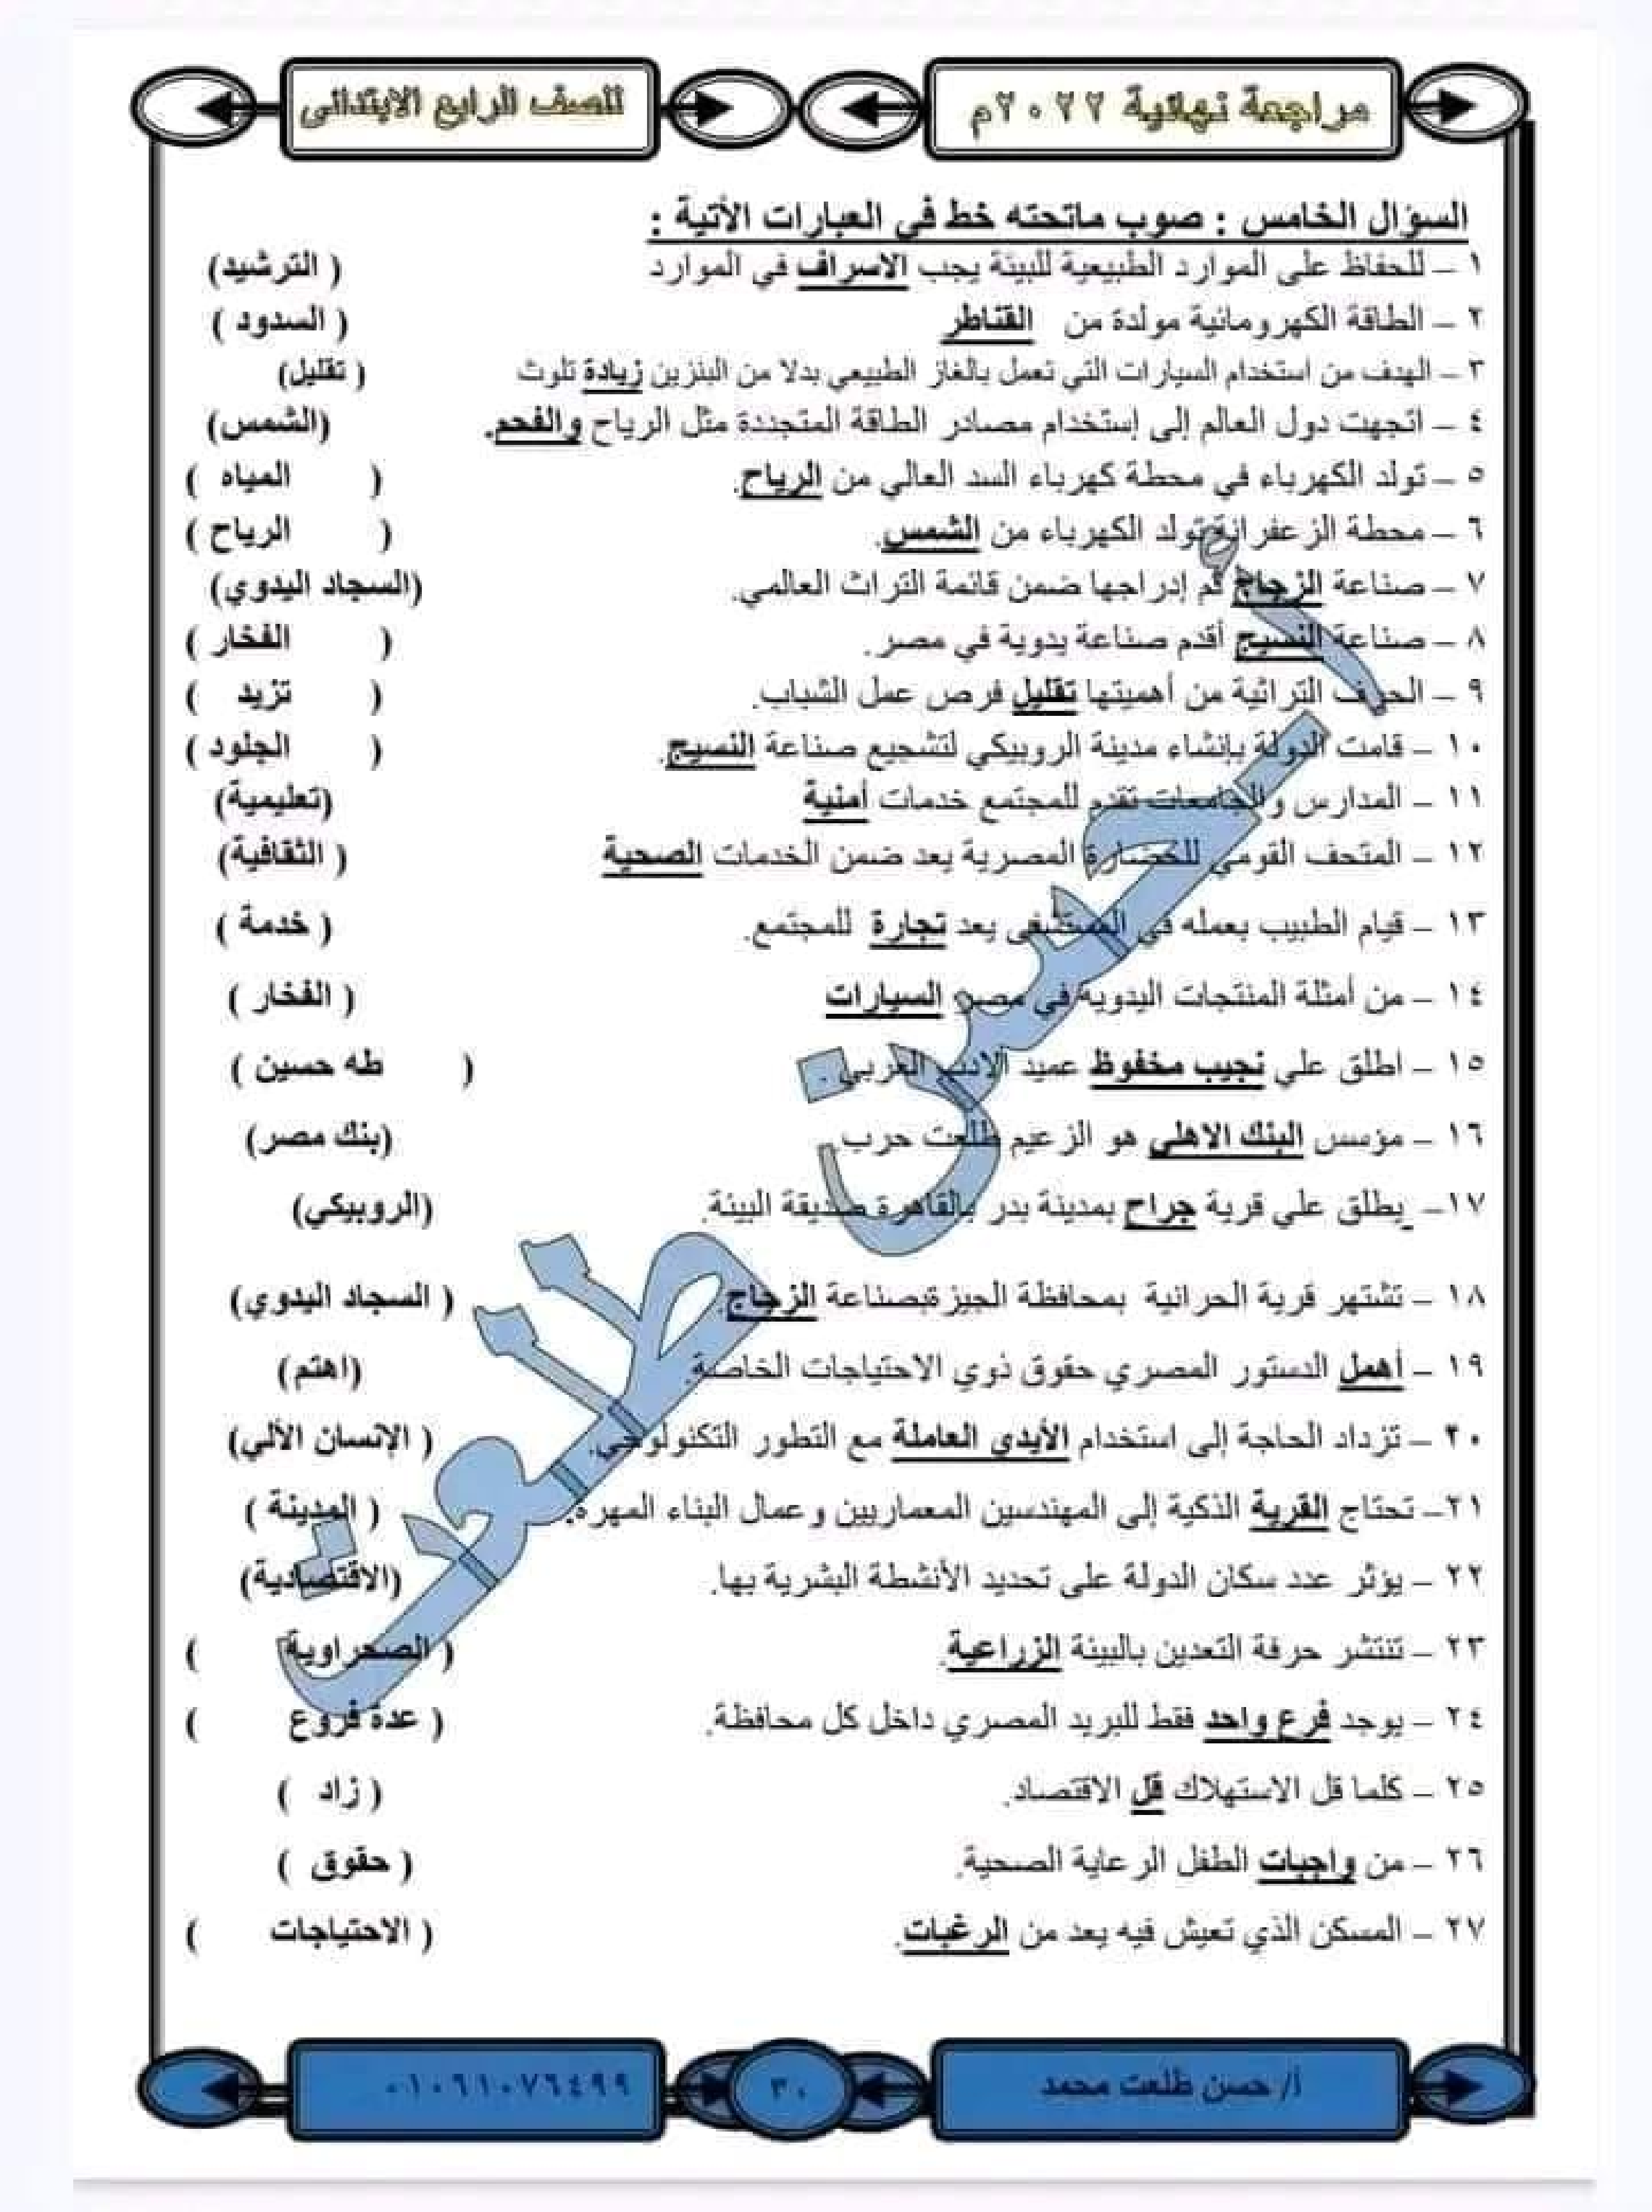 مراجعة نهائية ٢٠٢٢م
للصف الرابع الابتدائى
السؤال الخامس : صوب ماتحته خط في العبارات الأتية :
١ – للحفاظ على الموارد الطبيعية للبيئة يجب الاسراف في الموارد ( الترشيد)
٢ – الطاقة الكهرومائية مولدة من القناطر ( السدود )
٣ – الهدف من استخدام السيارات التي تعمل بالغاز الطبيعي بدلا من البنزين زيادة تلوث ( تقليل)
٤ – اتجهت دول العالم إلى إستخدام مصادر الطاقة المتجددة مثل الرياح والفحم. (الشمس)
٥ – تولد الكهرباء في محطة كهرباء السد العالي من الرياح. ( المياه )
٦ – محطة الزعفرانة تولد الكهرباء من الشمس. ( الرياح )
٧ – صناعة الزجاج تم إدراجها ضمن قائمة التراث العالمي. (السجاد اليدوي)
٨ – صناعة النسيج أقدم صناعة يدوية في مصر. ( الفخار )
٩ – الحرف التراثية من أهميتها تقليل فرص عمل الشباب. ( تزيد )
١٠ – قامت الدولة بإنشاء مدينة الروبيكي لتشجيع صناعة النسيج. ( الجلود )
١١ – المدارس والجامعات تقدم للمجتمع خدمات أمنية (تعليمية)
١٢ – المتحف القومي للحضارة المصرية يعد ضمن الخدمات الصحية ( الثقافية)
١٣ – قيام الطبيب بعمله في المستشفى يعد تجارة للمجتمع. ( خدمة )
١٤ – من أمثلة المنتجات اليدوية في مصر السيارات ( الفخار )
١٥ – اطلق علي نجيب مخفوظ عميد الادب العربي . ( طه حسين )
١٦ – مؤسس البنك الاهلي هو الزعيم طلعت حرب. (بنك مصر)
١٧– يطلق علي قرية جراح بمدينة بدر بالقاهرة صديقة البيئة. (الروبيكي)
١٨ – تشتهر قرية الحرانية بمحافظة الجيزةبصناعة الزجاج. ( السجاد اليدوي)
١٩ – أهمل الدستور المصري حقوق ذوي الاحتياجات الخاصة. (اهتم)
٢٠ – تزداد الحاجة إلى استخدام الأيدي العاملة مع التطور التكنولوجي. ( الإنسان الألي)
٢١– تحتاج القرية الذكية إلى المهندسين المعماريين وعمال البناء المهرة. ( المدينة )
٢٢ – يؤثر عدد سكان الدولة على تحديد الأنشطة البشرية بها. (الاقتصادية)
٢٣ – تنتشر حرفة التعدين بالبيئة الزراعية. ( الصحراوية )
٢٤ – يوجد فرع واحد فقط للبريد المصري داخل كل محافظة. ( عدة فروع )
٢٥ – كلما قل الاستهلاك قل الاقتصاد. ( زاد )
٢٦ – من واجبات الطفل الرعاية الصحية. ( حقوق )
٢٧ – المسكن الذي تعيش فيه يعد من الرغبات. ( الاحتياجات )
أ/ حسن طلعت
أ/ حسن طلعت محمد
٣٠
٠١٠٦١٠٧٦٤٩٩